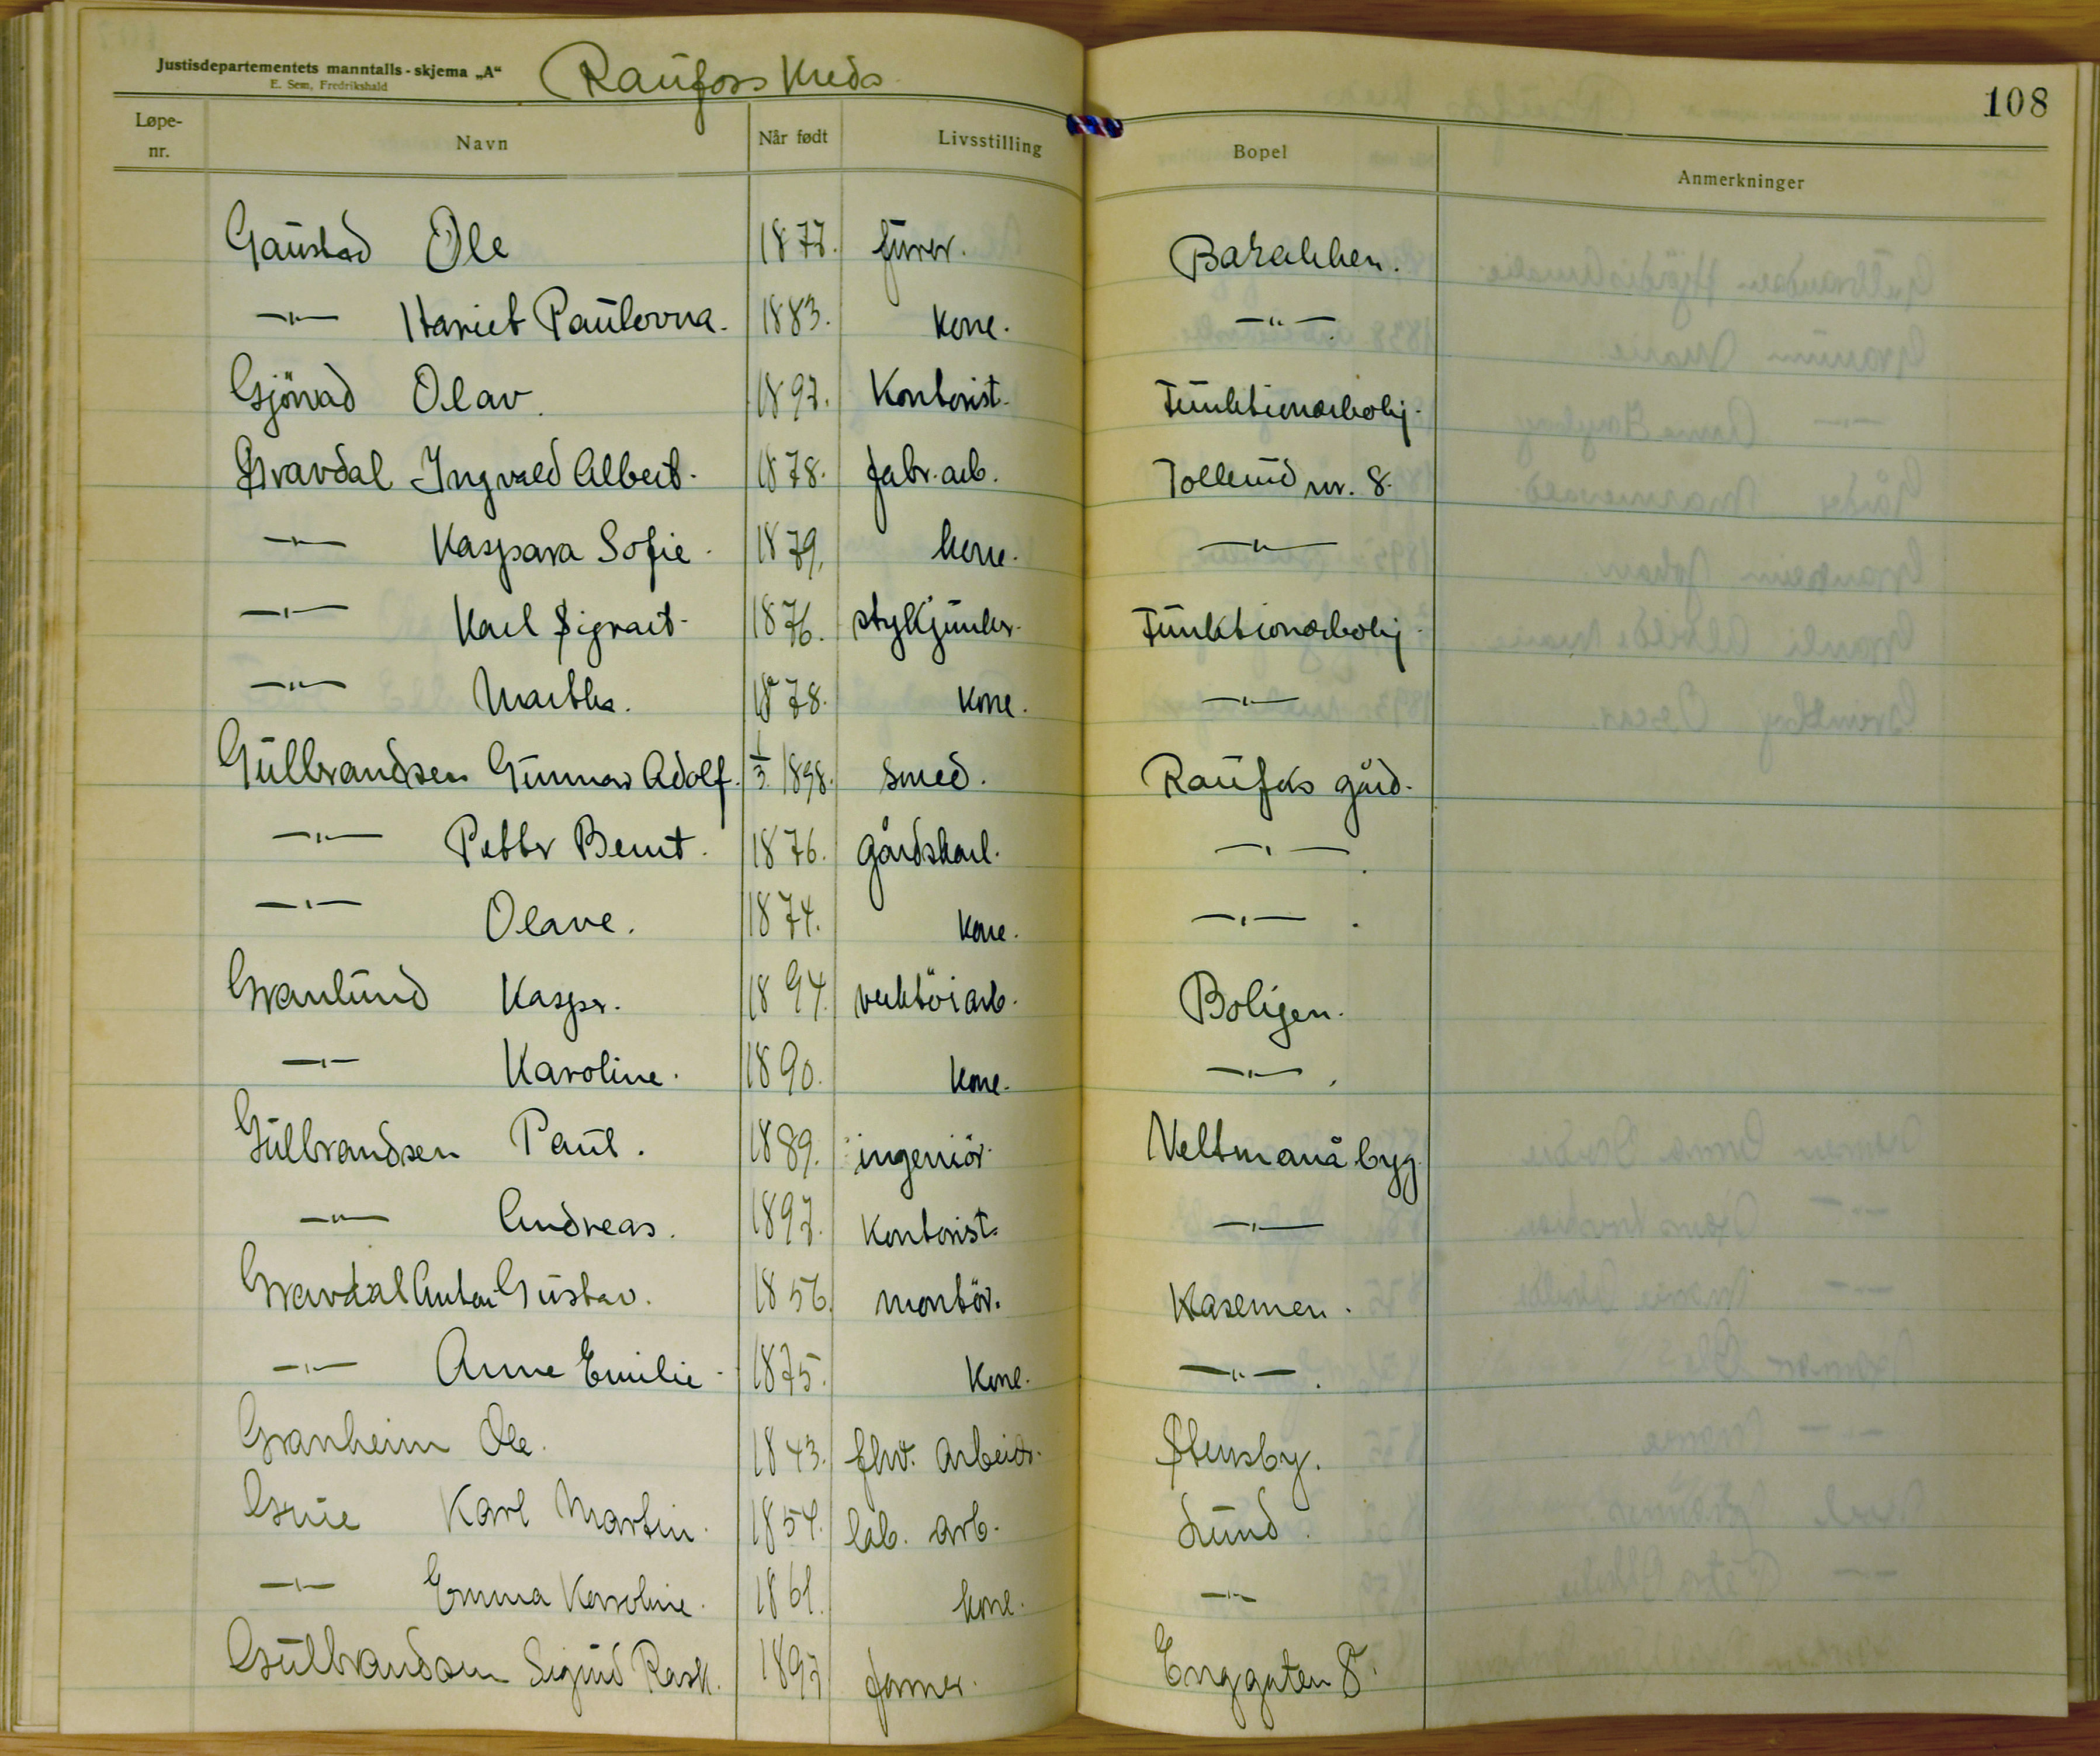 Justisdepartementets manntalls-skjema „A“ Raufoss Kreds 108
E. Sem, Fredrikshald
Løpe-nr. Navn Når født Livsstilling Bopel Anmerkninger
Gaustad Ole 1877. fürer. Barakken.
—„— Hariet Paulovna. 1883. kone. —„—
Gjövad Olav. 1897. Kontorist. Funktionærbolig.
Gravdal Ingvald Albert. 1878. fabr. arb. Tollerud nr. 8.
—„— Kaspara Sofie. 1879. kone. —„—
—„— Karl Sigvart. 1876. stykjunker. Funktionærbolig.
—„— Martha. 1878. kone. —„—
Gülbrandsen Gunnar Adolf. 1/3 1898. smed. Raufos gård.
—„— Petter Bernt. 1876. gårdskarl. —„—
—„— Olave. 1874. kone. —„—
Granlund Kasper. 1894. verktöiarb. Boligen.
—„— Karoline. 1890. kone. —„—
Gülbrandsen Paul. 1889. ingeniör. Veltmanå byg.
—„— Andreas. 1897. Kontorist. —„—
Gravdal Anton Gustav. 1856. montör. Kasernen.
—„— Anne Emilie. 1875. kone. —„—
Granheim Ole. 1843. fhv. arbeider. Stensby.
Grue Karl Martin. 1854. lab. arb. Lund.
—„— Emma Karoline. 1861. kone. —„—
Gulbrandsen Sigurd Rask. 1897 former. Enggaten 8.